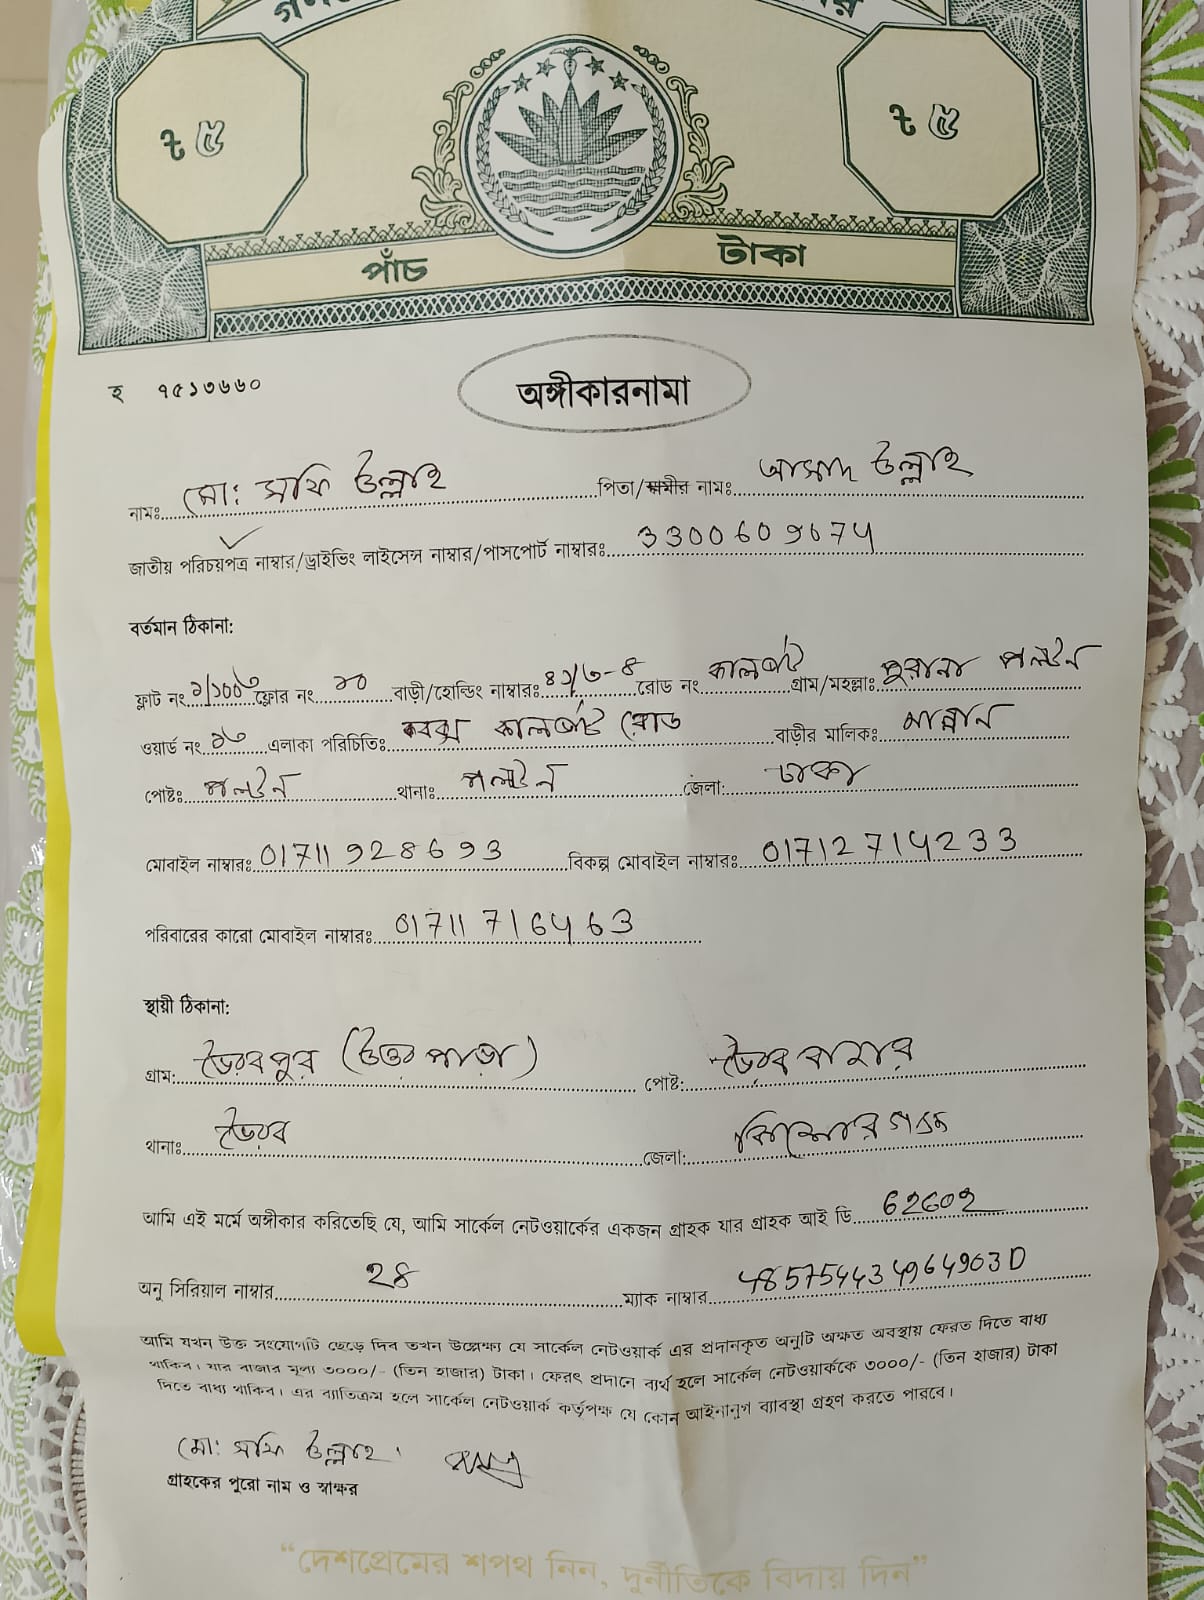 ৳ ৫
৳ ৫
পাঁচ টাকা
হ ৭৫১৩৬৬০
অঙ্গীকারনামা
নামঃ মো: সফি উল্লাহ পিতা/স্বামীর নামঃ আসাদ উল্লাহ
জাতীয় পরিচয়পত্র নাম্বার/ড্রাইভিং লাইসেন্স নাম্বার/পাসপোর্ট নাম্বারঃ 3300609674
বর্তমান ঠিকানা:
ফ্লাট নং ৯/১০০৬ ফ্লোর নং ১০ বাড়ী/হোল্ডিং নাম্বারঃ ৪১/৩-৪ রোড নং কালভার্ট গ্রাম/মহল্লাঃ পুরানা পল্টন
ওয়ার্ড নং ১৩ এলাকা পরিচিতিঃ বক্স কালভার্ট রোড বাড়ীর মালিকঃ মান্নান
পোষ্টঃ পল্টন থানাঃ পল্টন জেলা: ঢাকা
মোবাইল নাম্বারঃ 01711928693 বিকল্প মোবাইল নাম্বারঃ 01712714233
পরিবারের কারো মোবাইল নাম্বারঃ 01711716463
স্থায়ী ঠিকানা:
গ্রাম: ভৈরবপুর (উত্তর পাড়া) পোষ্ট: ভৈরব বাজার
থানাঃ ভৈরব জেলা: কিশোরগঞ্জ
আমি এই মর্মে অঙ্গীকার করিতেছি যে, আমি সার্কেল নেটওয়ার্কের একজন গ্রাহক যার গ্রাহক আই ডি 62602
অনু সিরিয়াল নাম্বার 28 ম্যাক নাম্বার 485754434964903D
আমি যখন উক্ত সংযোগটি ছেড়ে দিব তখন উল্লেক্ষ্য যে সার্কেল নেটওয়ার্ক এর প্রদানকৃত অনুটি অক্ষত অবস্থায় ফেরত দিতে বাধ্য
থাকিব। যার বাজার মূল্য ৩০০০/- (তিন হাজার) টাকা। ফেরৎ প্রদানে ব্যর্থ হলে সার্কেল নেটওয়ার্ককে ৩০০০/- (তিন হাজার) টাকা
দিতে বাধ্য থাকিব। এর ব্যাতিক্রম হলে সার্কেল নেটওয়ার্ক কর্তৃপক্ষ যে কোন আইনানুগ ব্যাবস্থা গ্রহণ করতে পারবে।
মো: সফি উল্লাহ
গ্রাহকের পুরো নাম ও স্বাক্ষর
“দেশপ্রেমের শপথ নিন, দুর্নীতিকে বিদায় দিন”